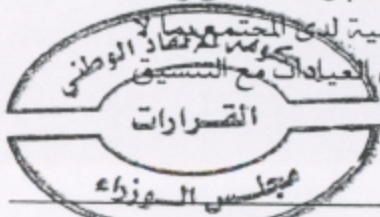 ية لدى المجتمع بما لا
العيادات مع التنسيق
حكومة الوفاق الوطني
القرارات
مجلس الوزراء